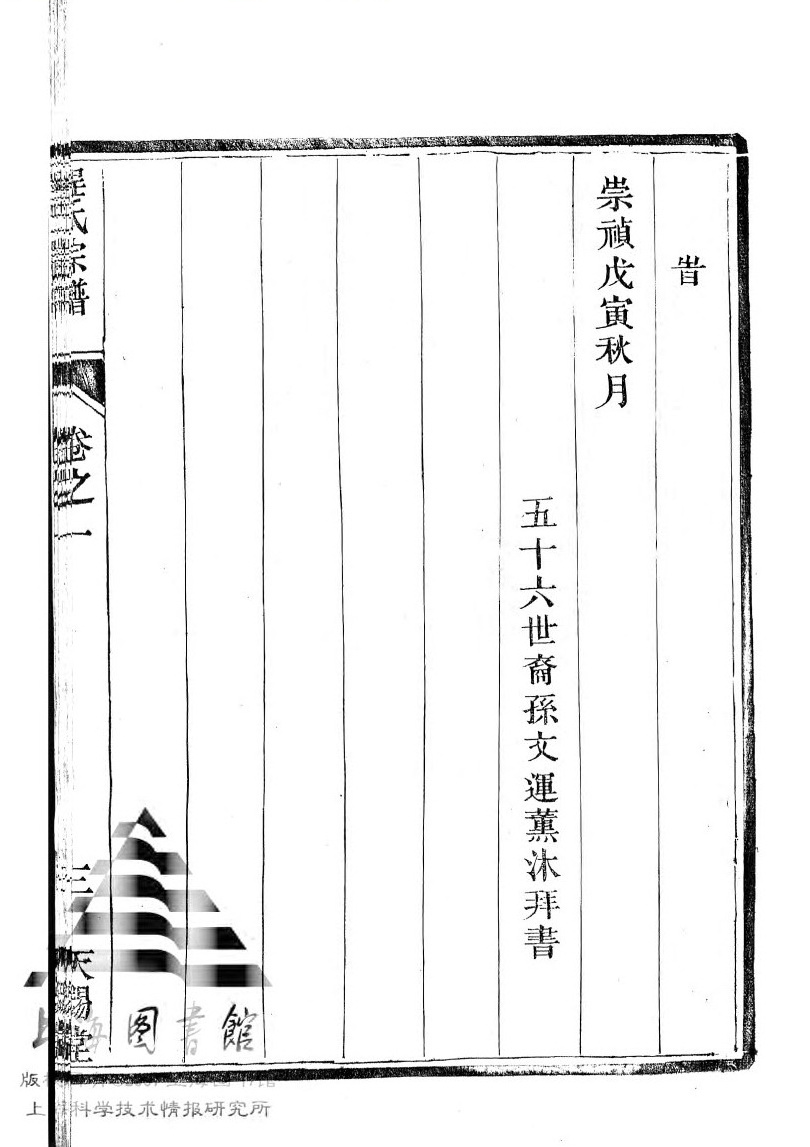 旹
崇禎戊寅秋月
五十六世裔孫文運薰沐拜書
程氏宗譜
卷之一
三
天錫堂
上海图書館
科学技术情报研究所